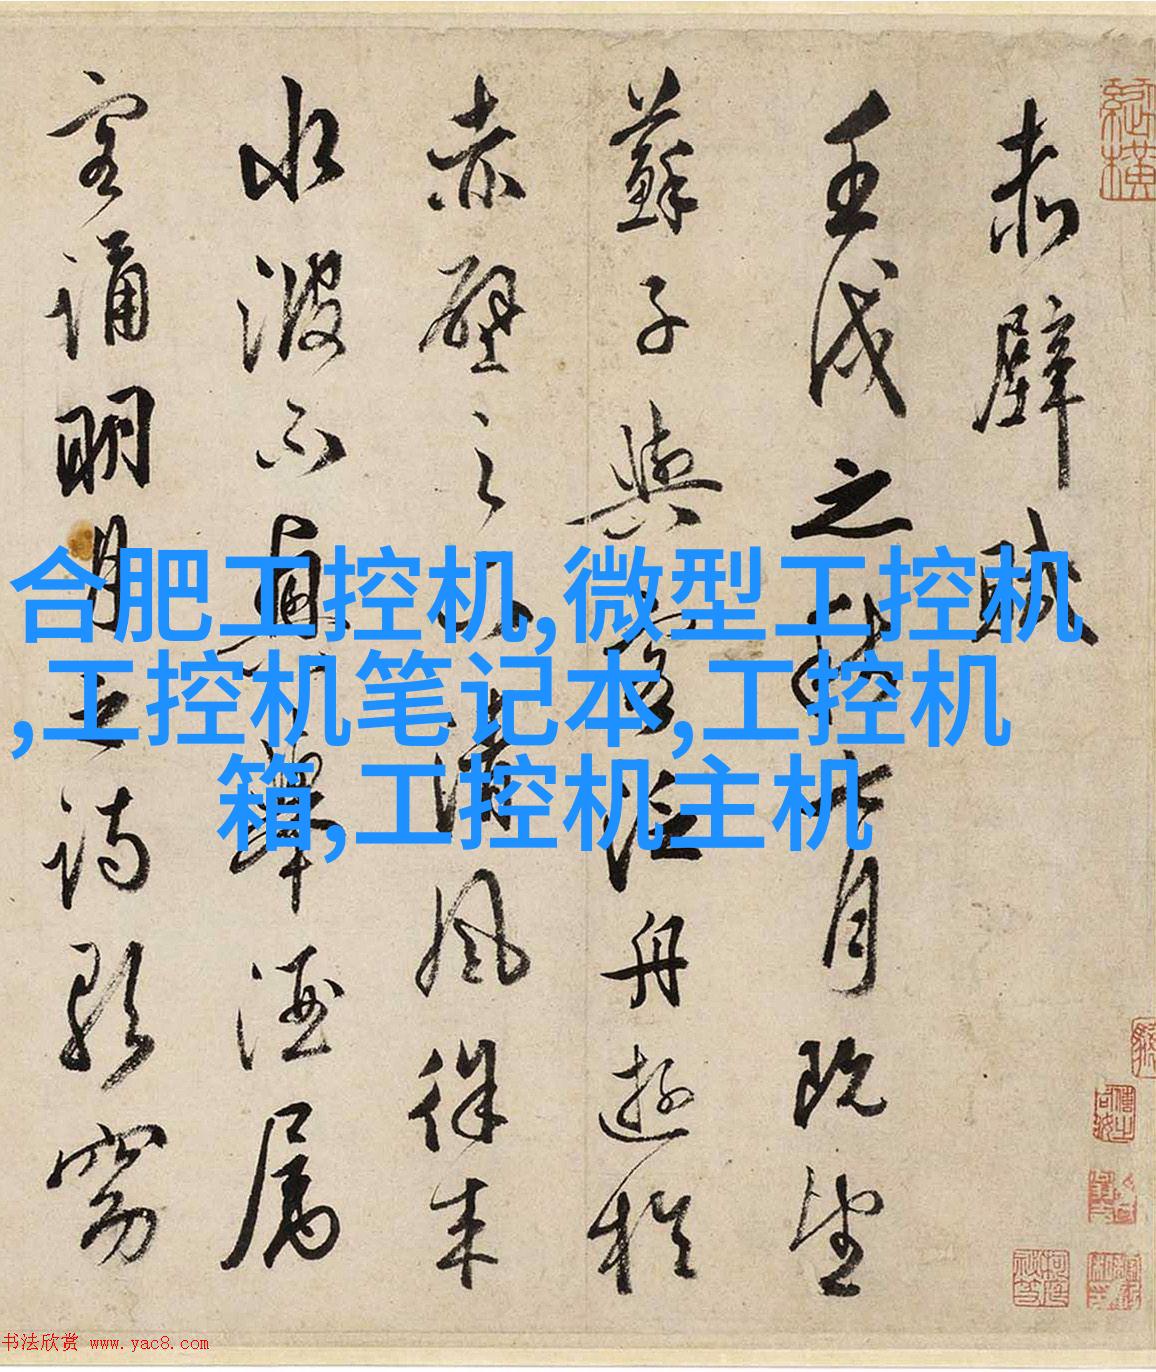 赤壁賦
壬戌之秋七月既望
蘇子與客泛舟遊於
赤壁之下清風徐来
水波不興舉酒属
客誦明月之詩歌窈
合肥工控机,微型工控机
,工控机笔记本,工控机
箱,工控机主机
书法欣赏 www.yac8.com